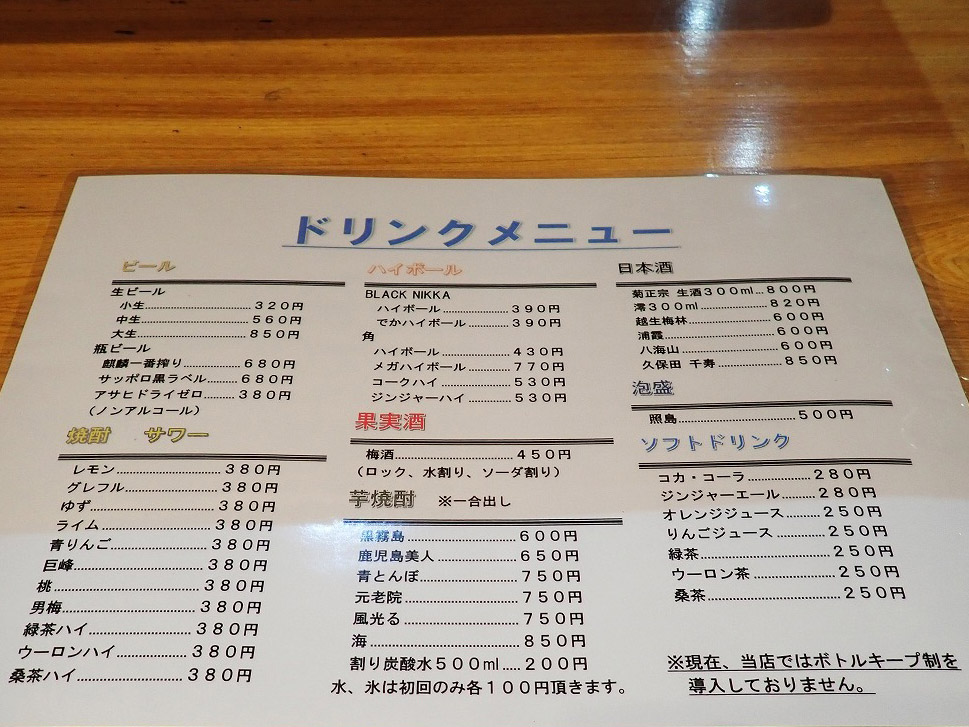 ドリンクメニュー
ビール
生ビール
小生 320円
中生 560円
大生 850円
瓶ビール
麒麟一番搾り 680円
サッポロ黒ラベル 680円
アサヒドライゼロ 380円
(ノンアルコール)
焼酎 サワー
レモン 380円
グレフル 380円
ゆず 380円
ライム 380円
青りんご 380円
巨峰 380円
桃 380円
男梅 380円
緑茶ハイ 380円
ウーロンハイ 380円
桑茶ハイ 380円
ハイボール
BLACK NIKKA
ハイボール 390円
でかハイボール 390円
角
ハイボール 430円
メガハイボール 770円
コークハイ 530円
ジンジャーハイ 530円
果実酒
梅酒 450円
(ロック、水割り、ソーダ割り)
芋焼酎 ※一合出し
黒霧島 600円
鹿児島美人 650円
青とんぼ 750円
元老院 750円
風光る 750円
海 850円
割り炭酸水500ml 200円
水、氷は初回のみ各100円頂きます。
日本酒
菊正宗 生酒300ml 800円
澪300ml 820円
越生梅林 600円
浦霞 600円
八海山 600円
久保田 千寿 850円
泡盛
照島 500円
ソフトドリンク
コカ・コーラ 280円
ジンジャーエール 280円
オレンジジュース 250円
りんごジュース 250円
緑茶 250円
ウーロン茶 250円
桑茶 250円
※現在、当店ではボトルキープ制を
導入しておりません。